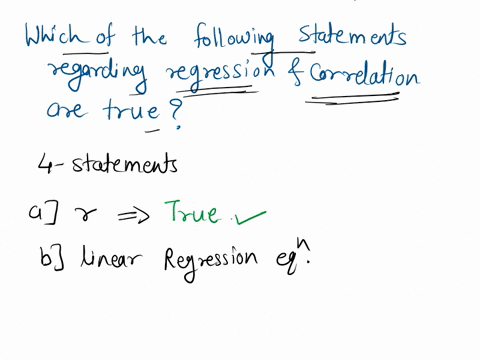 Which of the following Statements
regarding regression & Correlation
are true?
4-statements
a] r ⇒ True ✓
b] linear Regression eqⁿ.